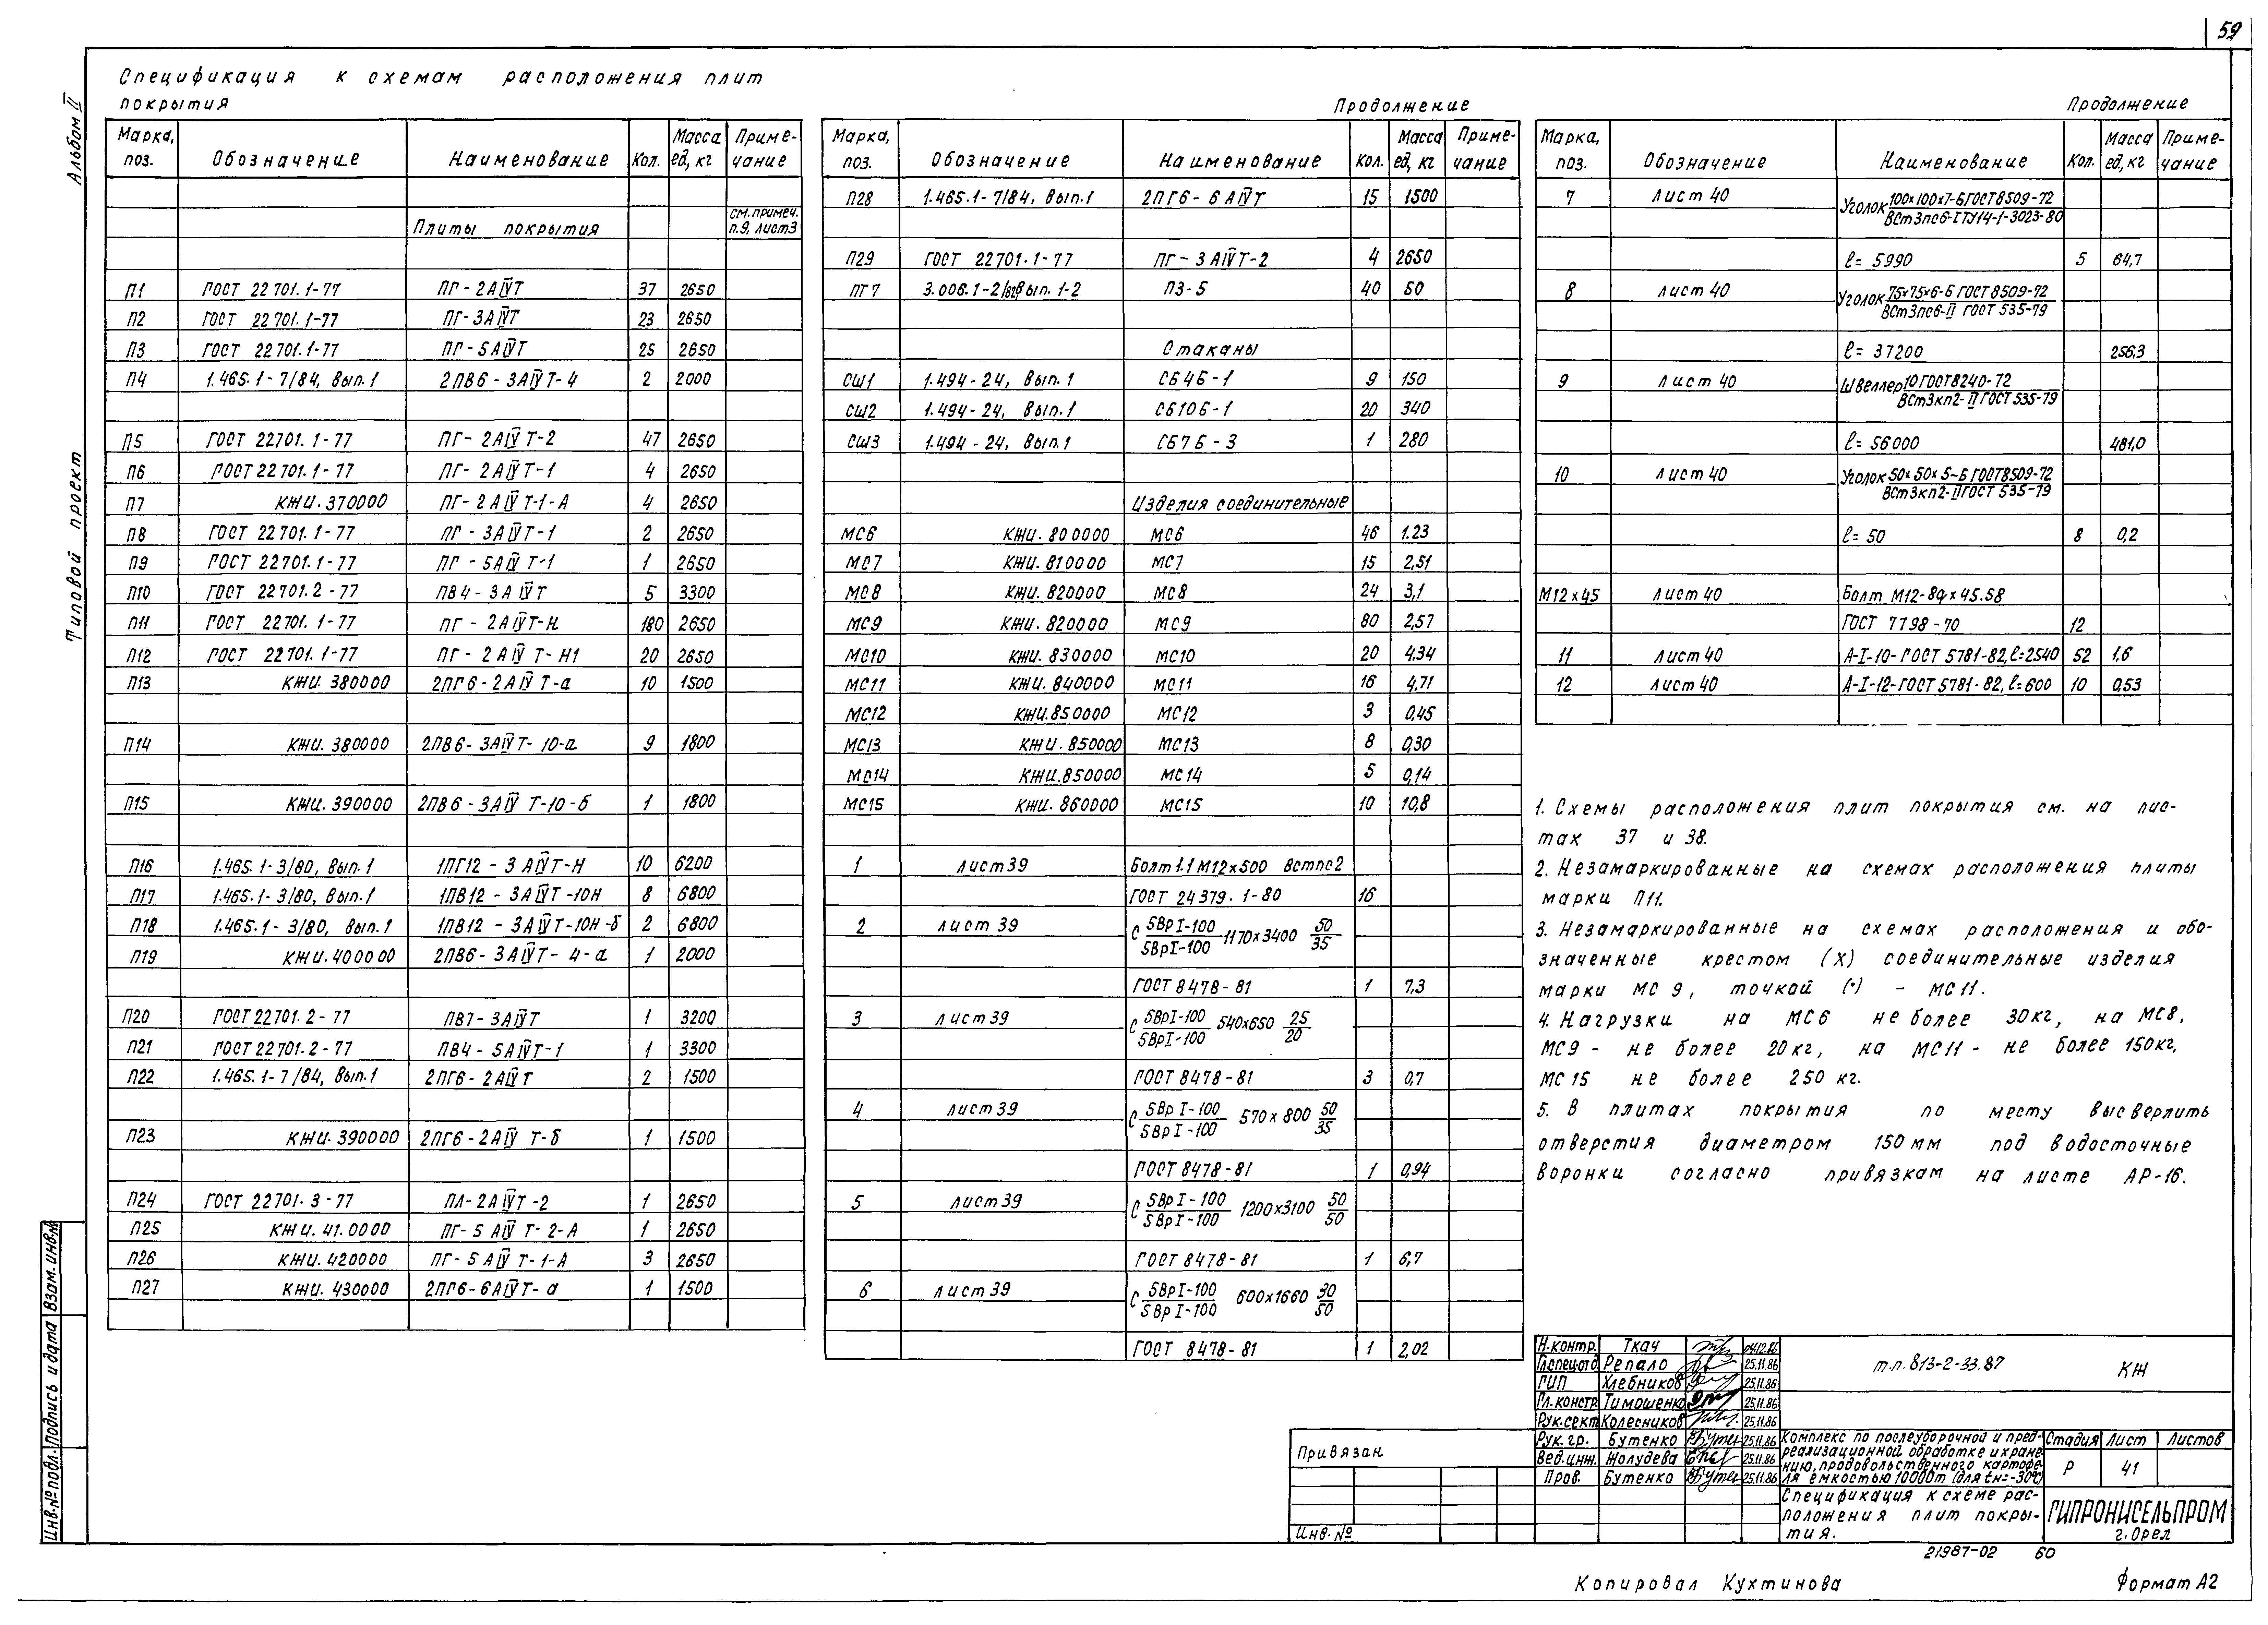 59
Альбом II
Типовой проект
Спецификация к схемам расположения плит
покрытия
Марка, поз. Обозначение Наименование Кол. Масса ед, кг Приме-чание
Плиты покрытия см. примеч. п.9, лист3
П1 ГОСТ 22701.1-77 ПГ-2АIVТ 37 2650
П2 ГОСТ 22701.1-77 ПГ-3АIVТ 23 2650
П3 ГОСТ 22701.1-77 ПГ-5АIVТ 25 2650
П4 1.465.1-7/84, вып.1 2ПВ6-3АIVТ-4 2 2000
П5 ГОСТ 22701.1-77 ПГ-2АIVТ-2 47 2650
П6 ГОСТ 22701.1-77 ПГ-2АIVТ-1 4 2650
П7 КЖИ.370000 ПГ-2АIVТ-1-А 4 2650
П8 ГОСТ 22701.1-77 ПГ-3АIVТ-1 2 2650
П9 ГОСТ 22701.1-77 ПГ-5АIVТ-1 1 2650
П10 ГОСТ 22701.2-77 ПВ4-3АIVТ 5 3300
П11 ГОСТ 22701.1-77 ПГ-2АIVТ-Н 180 2650
П12 ГОСТ 22701.1-77 ПГ-2АIVТ-Н1 20 2650
П13 КЖИ.380000 2ПГ6-2АIVТ-а 10 1500
П14 КЖИ.380000 2ПВ6-3АIVТ-10-а 9 1800
П15 КЖИ.390000 2ПВ6-3АIVТ-10-б 1 1800
П16 1.465.1-3/80, вып.1 1ПГ12-3АIVТ-Н 10 6200
П17 1.465.1-3/80, вып.1 1ПВ12-3АIVТ-10Н 8 6800
П18 1.465.1-3/80, вып.1 1ПВ12-3АIVТ-10Н-б 2 6800
П19 КЖИ.400000 2ПВ6-3АIVТ-4-а 1 2000
П20 ГОСТ 22701.2-77 ПВ7-3АIVТ 1 3200
П21 ГОСТ 22701.2-77 ПВ4-5АIVТ-1 1 3300
П22 1.465.1-7/84, вып.1 2ПГ6-2АIVТ 2 1500
П23 КЖИ.390000 2ПГ6-2АIVТ-б 1 1500
П24 ГОСТ 22701.3-77 ПЛ-2АIVТ-2 1 2650
П25 КЖИ.41.0000 ПГ-5АIVТ-2-А 1 2650
П26 КЖИ.420000 ПГ-5АIVТ-1-А 3 2650
П27 КЖИ.430000 2ПГ6-6АIVТ-а 1 1500
Продолжение
Марка, поз. Обозначение Наименование Кол. Масса ед, кг Приме-чание
П28 1.465.1-7/84, вып.1 2ПГ6-6АIVТ 15 1500
П29 ГОСТ 22701.1-77 ПГ-3АIVТ-2 4 2650
ПТ7 3.006.1-2/82, вып.1-2 П3-5 40 50
Стаканы
СШ1 1.494-24, вып.1 СБ4Б-1 9 150
СШ2 1.494-24, вып.1 СБ10Б-1 20 340
СШ3 1.494-24, вып.1 СБ7Б-3 1 280
Изделия соединительные
МС6 КЖИ.800000 МС6 46 1.23
МС7 КЖИ.810000 МС7 15 2,51
МС8 КЖИ.820000 МС8 24 3,1
МС9 КЖИ.820000 МС9 80 2,57
МС10 КЖИ.830000 МС10 20 4.34
МС11 КЖИ.840000 МС11 16 4,71
МС12 КЖИ.850000 МС12 3 0,45
МС13 КЖИ.850000 МС13 8 0,30
МС14 КЖИ.850000 МС14 5 0,14
МС15 КЖИ.860000 МС15 10 10,8
1 лист39 Болт 1.1 М12х500 ВСтпс2
ГОСТ 24379.1-80 16
2 лист 39 С 5ВрI-100/5ВрI-100 1170х3400 50/35
ГОСТ 8478-81 1 7,3
3 лист39 С 5ВрI-100/5ВрI-100 540х650 25/20
ГОСТ 8478-81 3 0,7
4 лист39 С 5ВрI-100/5ВрI-100 570х800 50/35
ГОСТ 8478-81 1 0,94
5 лист39 С 5ВрI-100/5ВрI-100 1200х3100 50/50
ГОСТ 8478-81 1 6,7
6 лист39 С 5ВрI-100/5ВрI-100 600х1660 30/50
ГОСТ 8478-81 1 2,02
Продолжение
Марка, поз. Обозначение Наименование Кол. Масса ед, кг Приме-чание
7 Лист 40 Уголок 100х100х7-Б ГОСТ 8509-72/ВСт3пс6-I ТУ14-1-3023-80
ℓ=5990 5 64,7
8 лист 40 Уголок 75х75х6-Б ГОСТ 8509-72/ВСт3пс6-II ГОСТ 535-79
ℓ=37200 256.3
9 лист 40 Швеллер 10 ГОСТ 8240-72/ВСт3кп2-II ГОСТ 535-79
ℓ=56000 481,0
10 лист 40 Уголок 50х50х5-Б ГОСТ 8509-72/ВСт3кп2-II ГОСТ 535-79
ℓ=50 8 0,2
М12х45 лист 40 Болт М12-8qх45.58
ГОСТ 7798-70 12
11 лист 40 А-I-10-ГОСТ 5781-82, ℓ=2540 52 1.6
12 лист 40 А-I-12-ГОСТ 5781-82, ℓ=600 10 0,53
1. Схемы расположения плит покрытия см. на лис-
тах 37 и 38.
2. Незамаркированные на схемах расположения плиты
марки П11.
3. Незамаркированные на схемах расположения и обо-
значенные крестом (х) соединительные изделия
марки МС 9, точкой (•) – МС11.
4. Нагрузки на МС6 не более 30кг, на МС8,
МС9 - не более 20кг, на МС11 - не более 150кг,
МС 15 не более 250 кг.
5. В плитах покрытия по месту высверлить
отверстия диаметром 150мм под водосточные
воронки согласно привязкам на листе АР-16.
Н.контр. Ткач 04.12.86
Гл.спец.отд Репало 25.11.86
ГИП Хлебников 25.11.86
Гл.констр. Тимошенко 25.11.86
Рук.сект Колесников 25.11.86
Рук.гр. Бутенко 25.11.86
Вед.инж. Жолудева 25.11.86
Пров. Бутенко 25.11.86
т.п. 813-2-33.87 КЖ
Комплекс по послеуборочной и пред-
реализационной обработке и хране-
нию, продовольственного картофе-
ля емкостью 10000т (для tн=-30°С)
Стадия Лист Листов
Р 41
Спецификация к схеме рас-
положения плит покры-
тия.
ГИПРОНИСЕЛЬПРОМ
г. Орел
Привязан
Инв. №
Инв.№ подл. Подпись и дата Взам. инв.№
21987-02 60
Копировал Кухтинова Формат А2